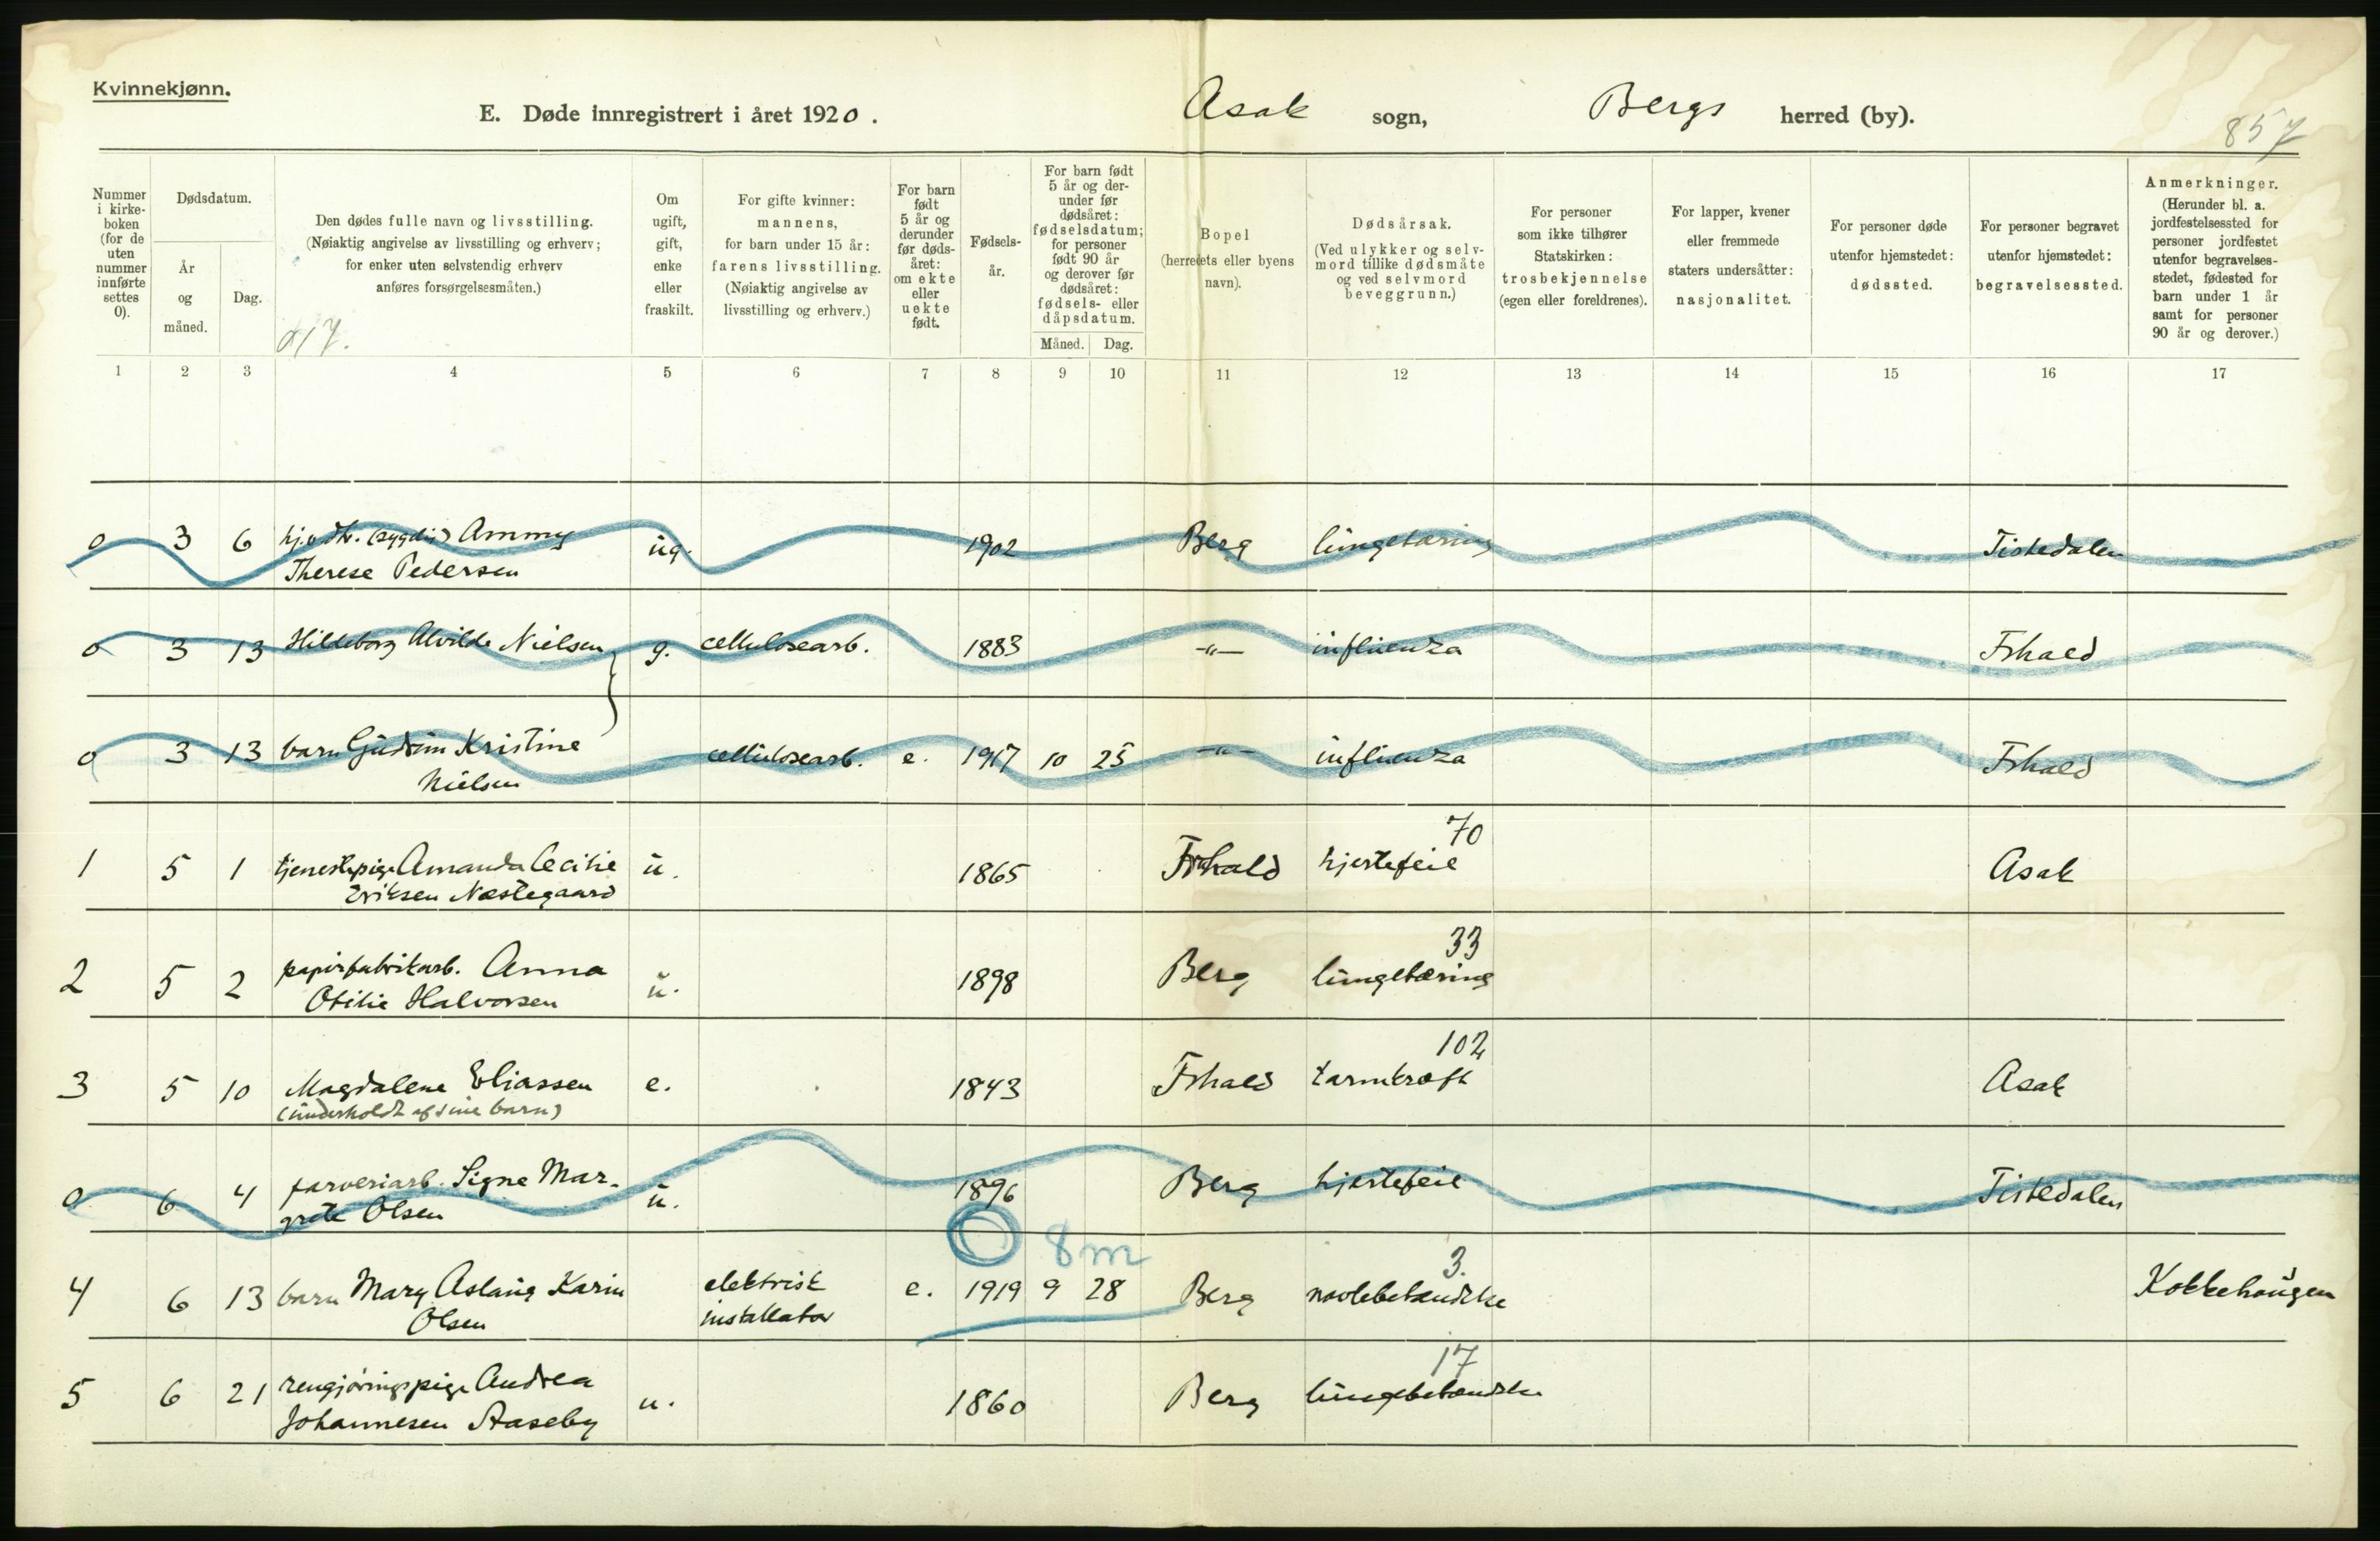 Kvinnekjønn.
E. Døde innregistrert i året 1920. Asak sogn, Bergs herred (by).
857
Nummer i kirke-boken (for de uten nummer innførte settes 0).
Dødsdatum.
År og måned.
Dag.
Den dødes fulle navn og livsstilling.
(Nøiaktig angivelse av livsstilling og erhverv;
for enker uten selvstendig erhverv
anføres forsørgelsesmåten.)
Om ugift, gift, enke eller fraskilt.
For gifte kvinner:
mannens,
for barn under 15 år:
farens livsstilling.
(Nøiaktig angivelse av
livsstilling og erhverv.)
For barn født 5 år og derunder før døds-året: om ekte eller uekte født.
Fødsels-år.
For barn født 5 år og der-under før dødsåret: fødselsdatum; for personer født 90 år og derover før dødsåret: fødsels- eller dåpsdatum.
Måned. Dag.
Bopel
(herredets eller byens
navn).
Dødsårsak.
(Ved ulykker og selv-
mord tillike dødsmåte
og ved selvmord
beveggrunn.)
For personer
som ikke tilhører
Statskirken:
trosbekjennelse
(egen eller foreldrenes).
For lapper, kvener
eller fremmede
staters undersåtter:
nasjonalitet.
For personer døde
utenfor hjemstedet:
dødssted.
For personer begravet
utenfor hjemstedet:
begravelsessted.
Anmerkninger.
(Herunder bl. a.
jordfestelsessted for
personer jordfestet
utenfor begravelses-
stedet, fødested for
barn under 1 år
samt for personer
90 år og derover.)
1 2 3 4 5 6 7 8 9 10 11 12 13 14 15 16 17
0 3 6 Ammy ug. 1902 Berg lungetæring Tistedalen
Therese Pedersen
0 3 13 Hildeborg Alvilde Nielsen g. cellulosearb. 1883 -"- influenza Frhald
0 3 13 barn Gudrun Kristine cellulosearb. e. 1917 10 25 -"- influenza Frhald
Nielsen
70
1 5 1 tjenestepige Amanda Cecilie u. 1865 Frhald hjertefeil Asak
Eriksen Næstegaard
33
2 5 2 papirfabrikarb. Anna u. 1898 Berg lungetæring
Otilie Halvorsen
102
3 5 10 Magdalene Eliassen e. 1843 Frhald tarmkræft Asak
(underholdt af sine barn)
0 6 4 farveriarb. Signe Mar- u. 1896 Berg hjertefeil Tistedalen
grete Olsen
8m
3.
4 6 13 barn Mary Aslaug Karin elektrisk e. 1919 9 28 Berg navlebetændelse Kokkehaugen
Olsen installatør
17
5 6 21 rengjøringspige Andrea u. 1860 Berg lungebetændelse
Johannesen Aaseby